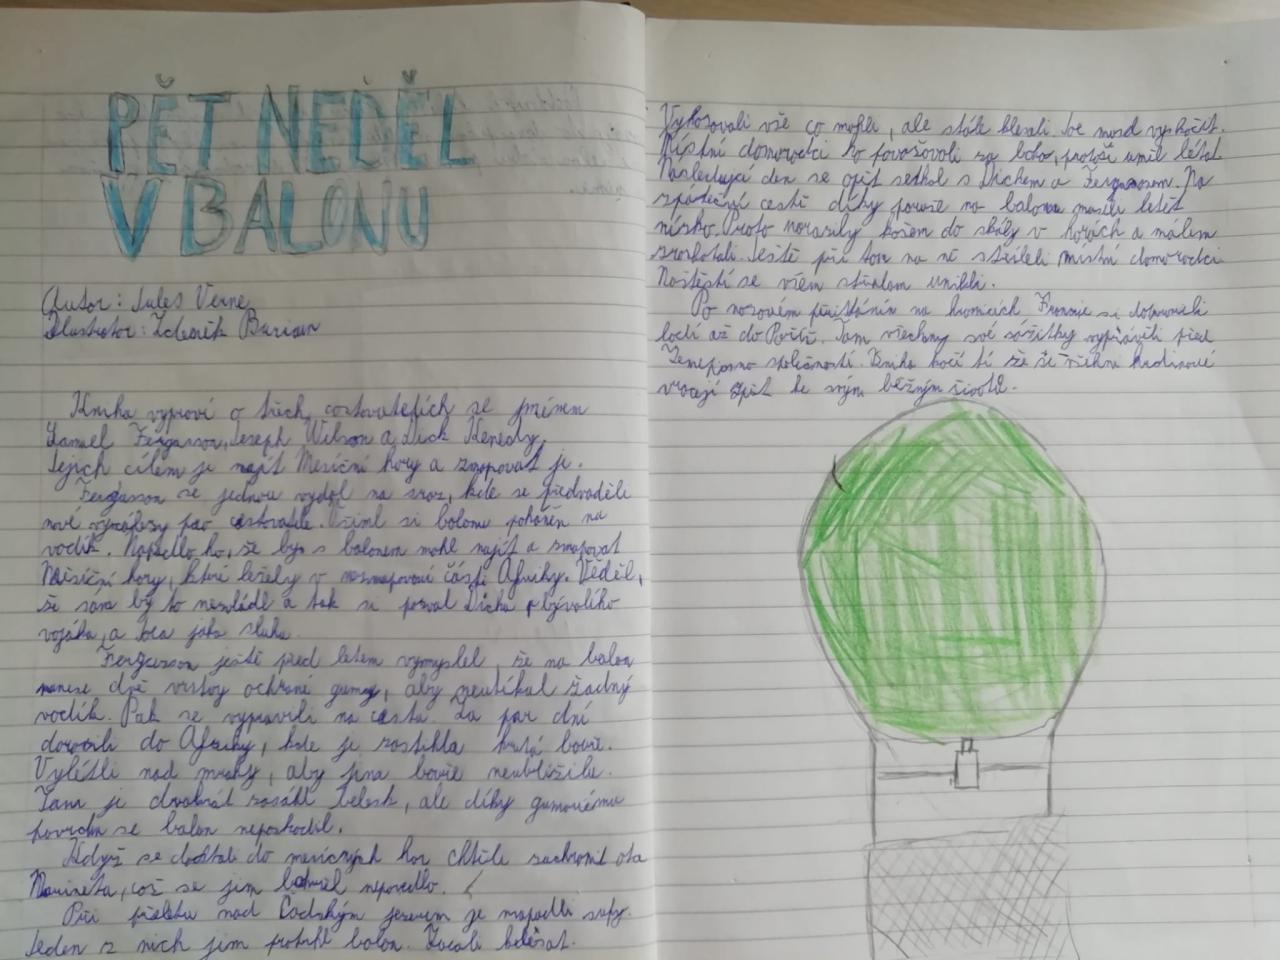 PĚT NEDĚL
V BALONU
Autor: Jules Verne
Ilustrator: Zdeněk Burian
Kniha vypraví o třech cestovatelích se jménem
Samuel Fergusson, Joseph Wilson a Dick Kenedy.
Jejich cílem je najít Mesíční hory a zmapovat je.
Fergusson se jednou vydal na sraz, kde se předváděli
nové vynálezy pro cestovatele. Všiml si balonu poháněn na
vodík. Napadlo ho, že by s balonem mohl najít a zmapovat
Měsíční hory, které ležely v nezmapované části Afriky. Věděl,
že sám by to nezvládl a tak si pozval Dicka, bývalího
vojáka, a Joa jako sluhu.
Fergusson ještě před letem vymyslel, že na balon
nanese dvě vrstvy ochrané gumy, aby neutíkal žadný
vodík. Pak se vypravili na cestu. Za par dní
dorazili do Afriky, kde je zastihla krutá bouře.
Vylétli nad mraky, aby jim bouře neublížila.
Tam je dvakrát zasáhl blesk, ale díky gumovému
povrchu se balon nepoškodil.
Když se dostali do mesíčných hor chtěli zachranit
což se jim nepovedlo.
Při přeletu nad Čadským jezerem je napadli supy.
Jeden z nich jim protrhl balon. Začali klesat.
Vyhazovali vše co mohli, ale stále klesali. Joe musel vyskočit.
Místní domorodci ho považovali za boha, protože uměl létat.
Nasledující den se opět setkal s Dickem a Fergussonem. Na
zpáteční cestě díky poruše na balonu museli letět
nízko. Proto narazily košem do skály v horách a málem
ztroskotali. Ještě při tom na ně stříleli místní domorodci.
Naštěstí se všem střelam unikli.
Po nouzovém přistáním na hranicích Francie si dopravili
lodí až do Paříže. Tam všechny své zážitky vyprávěli před
Zeměpisnou společností. Kniha končí tí že še všichni hrdinové
vracejí zpět ke svým běžným životů.